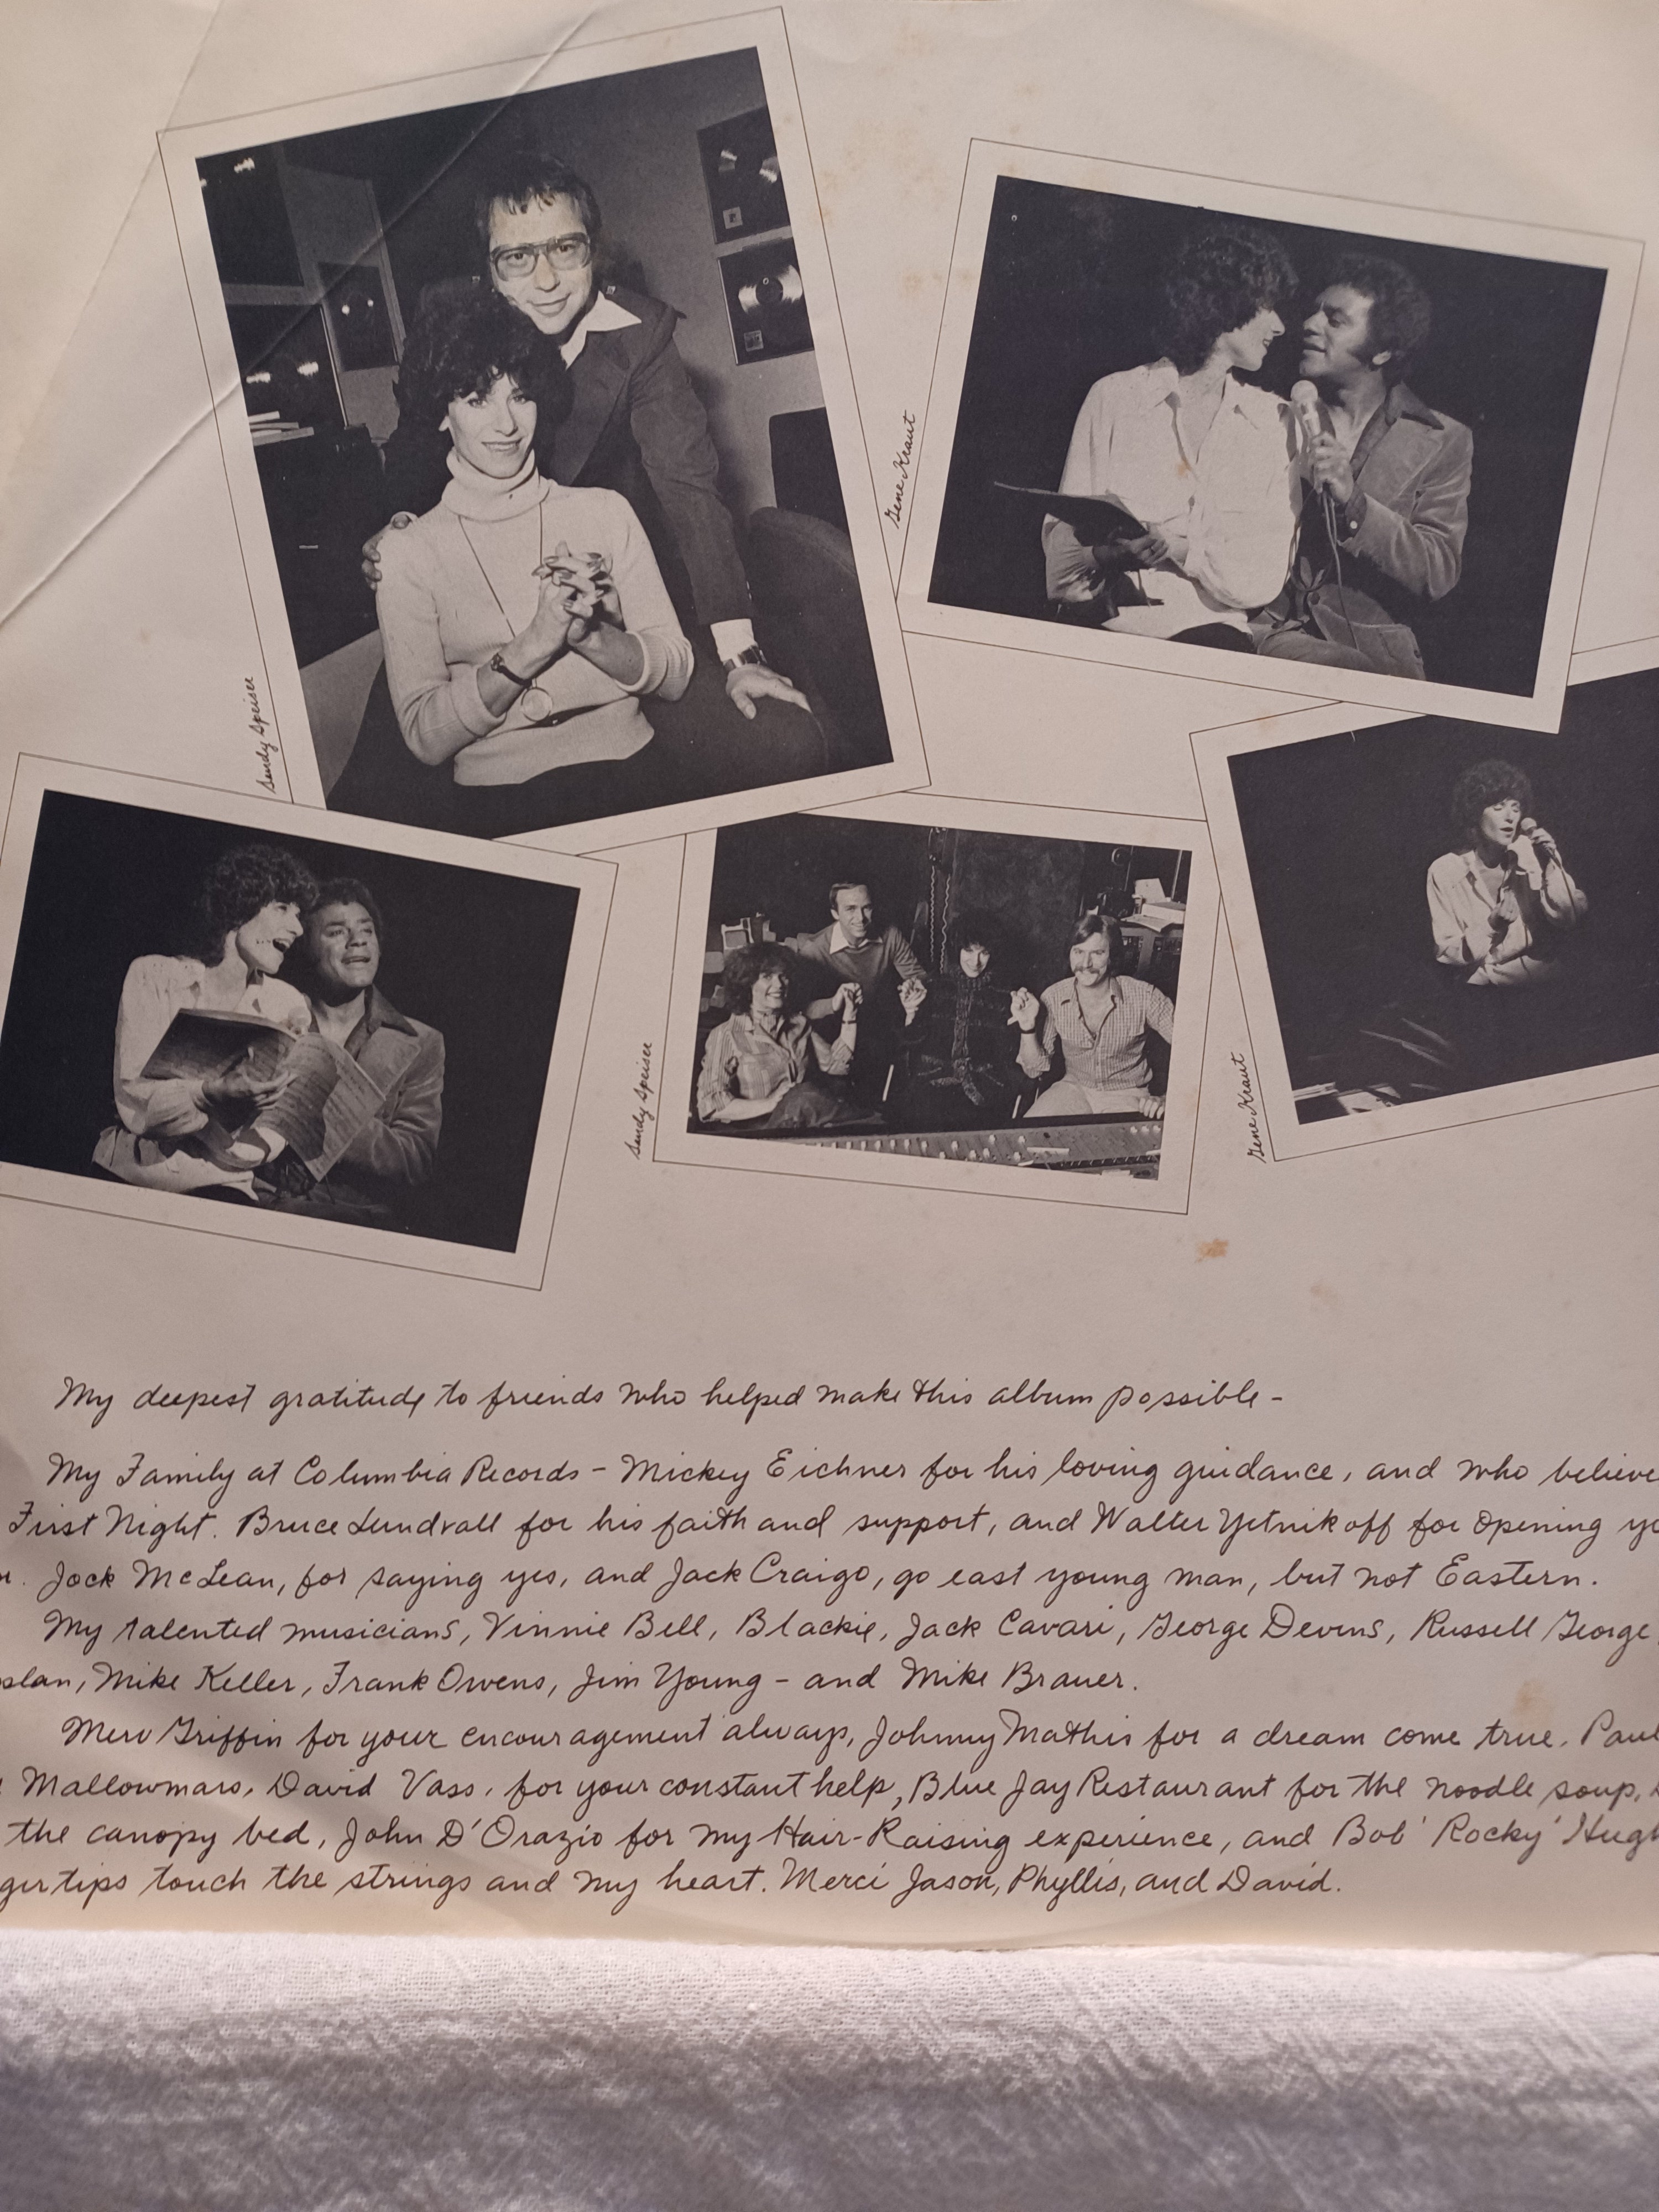 Gene Kraut
Sandy Speiser
Sandy Speiser
Gene Kraut
My deepest gratitude to friends who helped make this album possible -
My Family at Columbia Records - Mickey Eichner for his loving guidance, and who believe
First Night. Bruce Lundvall for his faith and support, and Walter Yetnikoff for opening yo
r. Jock McLean, for saying yes, and Jack Craigo, go east young man, but not Eastern.
My talented musicians, Vinnie Bell, Blackie, Jack Cavari, George Devens, Russell George,
plan, Mike Keller, Frank Owens, Jim Young - and Mike Brauer.
Merv Griffin for your encouragement always, Johnny Mathis for a dream come true. Paul
Mallowmars, David Vass, for your constant help, Blue Jay Restaurant for the noodle soup,
the canopy bed, John D'Orazio for my Hair-Raising experience, and Bob 'Rocky' Hugh
gertips touch the strings and my heart. Merci Jason, Phyllis, and David.